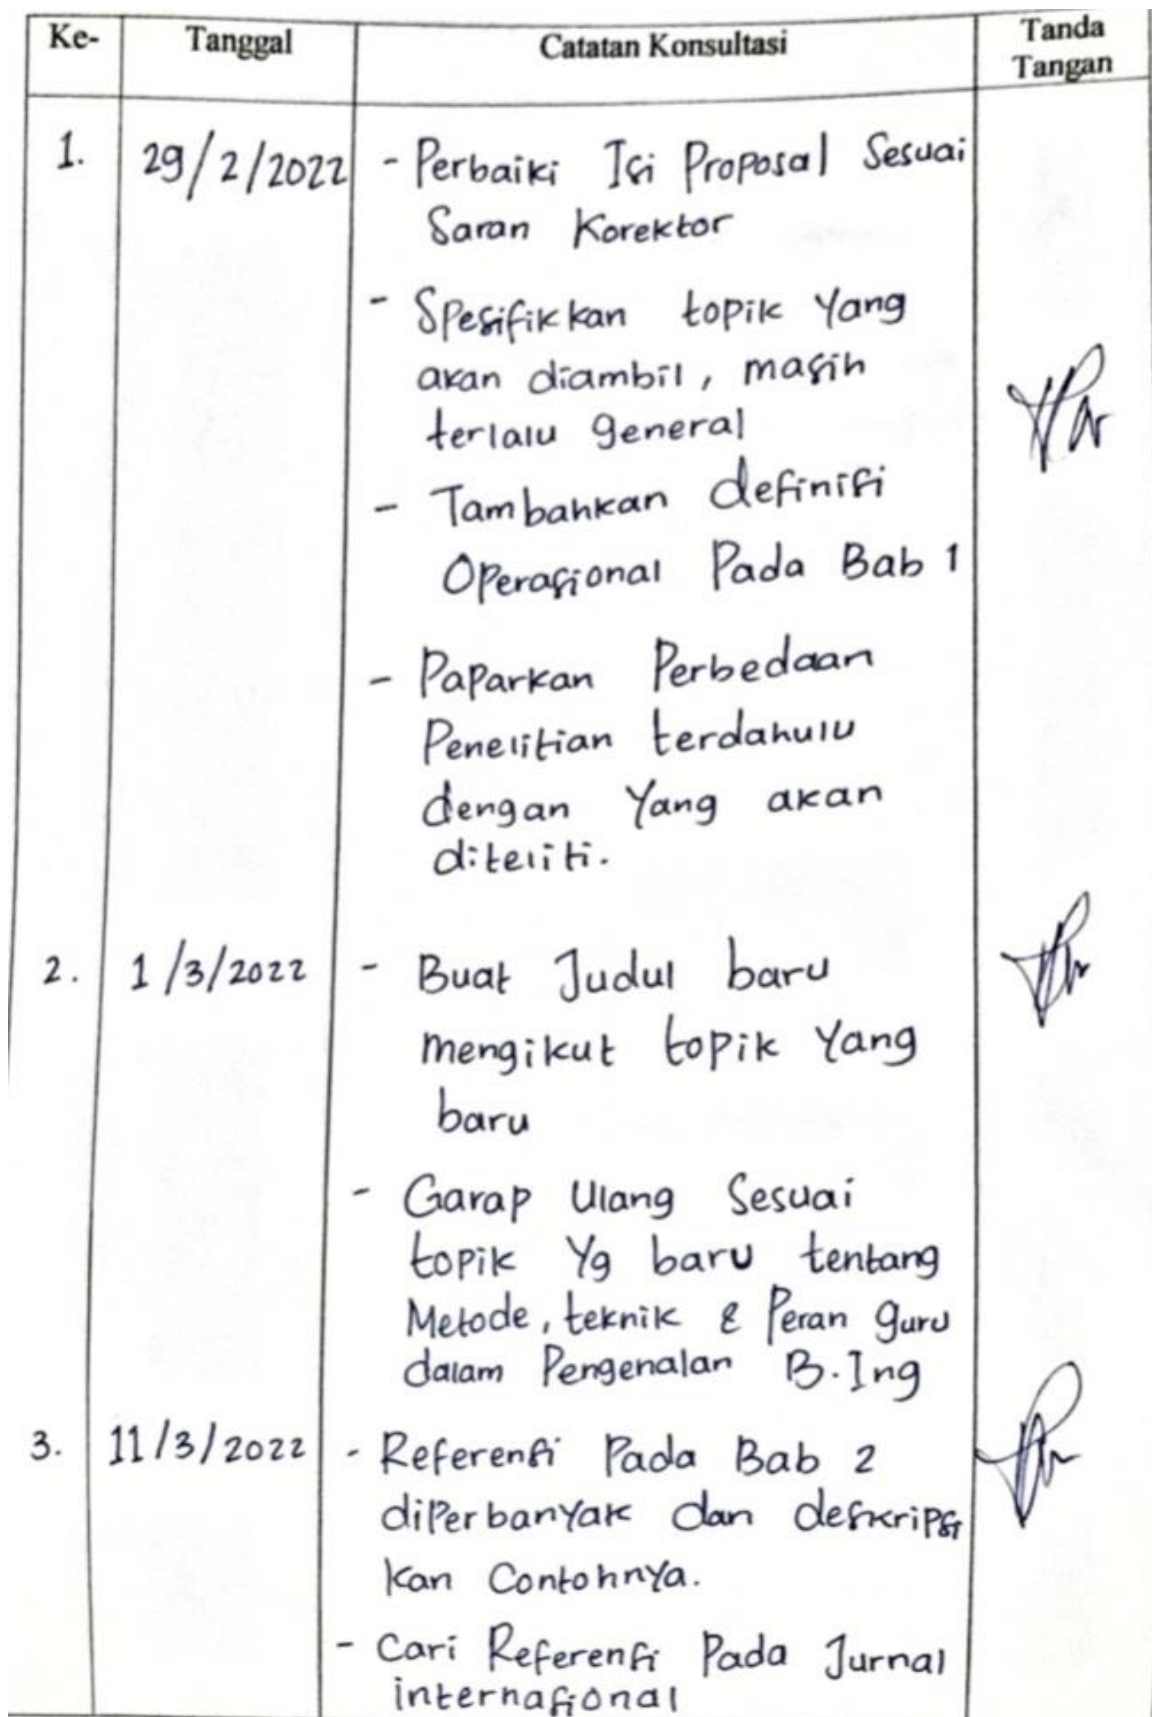 Ke- Tanggal Catatan Konsultasi Tanda
Tangan
1. 29/2/2022 - Perbaiki Isi Proposal Sesuai
Saran Korektor
- Spesifikkan topik Yang
akan diambil, masih
terlalu general
- Tambahkan definisi
Operasional Pada Bab 1
- Paparkan Perbedaan
Penelitian terdahulu
dengan Yang akan
diteliti.
2. 1/3/2022 - Buat Judul baru
mengikut topik Yang
baru
- Garap Ulang Sesuai
topik Yg baru tentang
Metode, teknik & Peran guru
dalam Pengenalan B.Ing
3. 11/3/2022 - Referensi Pada Bab 2
diPerbanyak dan deskripsi
kan Contohnya.
- Cari Referensi Pada Jurnal
internasional